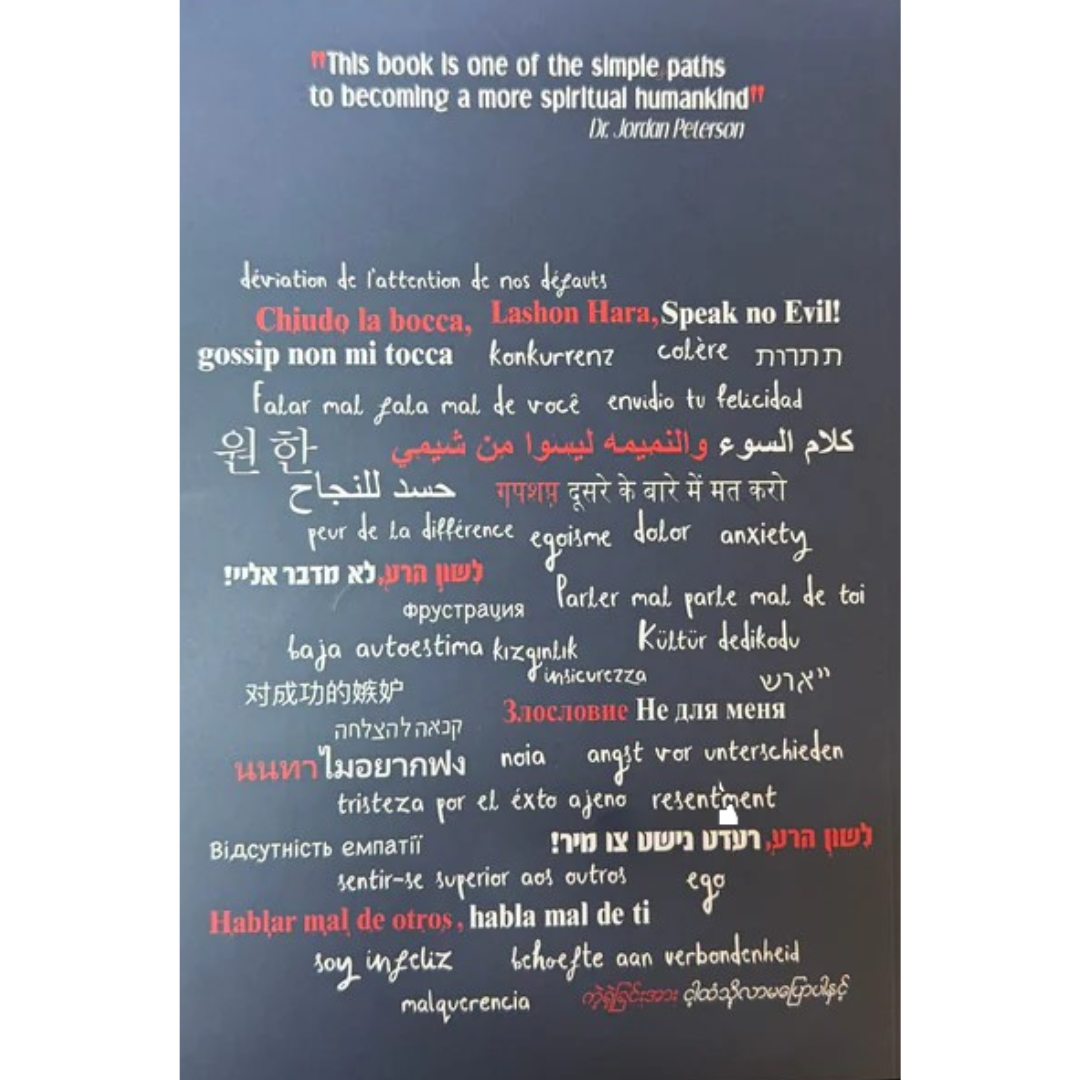 "This book is one of the simple paths
to becoming a more spiritual humankind"
Dr. Jordan Peterson
déviation de l'attention de nos défauts
Chiudo la bocca, Lashon Hara, Speak no Evil!
gossip non mi tocca konkurrenz colère תחרות
Falar mal fala mal de você envidio tu felicidad
원 한 كلام السوء والنميمه ليسوا من شيمي
حسد للنجاح गपशप दूसरे के बारे में मत करो
peur de la différence egoisme dolor anxiety
לשון הרע, לא מדבר אליי!
фрустрация Parler mal parle mal de toi
baja autoestima kızgınlık Kültür dedikodu
insicurezza
对成功的嫉妒
Злословие Не для меня
קנאה להצלחה
นนทาไมอยากฟง noia angst vor unterschieden
tristeza por el éxto ajeno resentment
Відсутність емпатії לשון הרע, רעדט נישט צו מיר!
sentir-se superior aos outros ego
Hablar mal de otros, habla mal de ti
soy infeliz behoefte aan verbondenheid
malquerencia